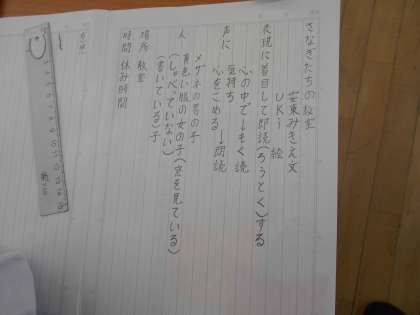 さなぎたちの教室
安東みきえ文
UKi 絵
表現に着目して朗読(ろうどく)する
心の中で→もく読
気持ち
声に 心をこめる→朗読
メガネの男の子
人 黄色い服の女の子(窓を見ている)
(しゃべっていない)
(書いている)子
場所 教室
時間 休み時間